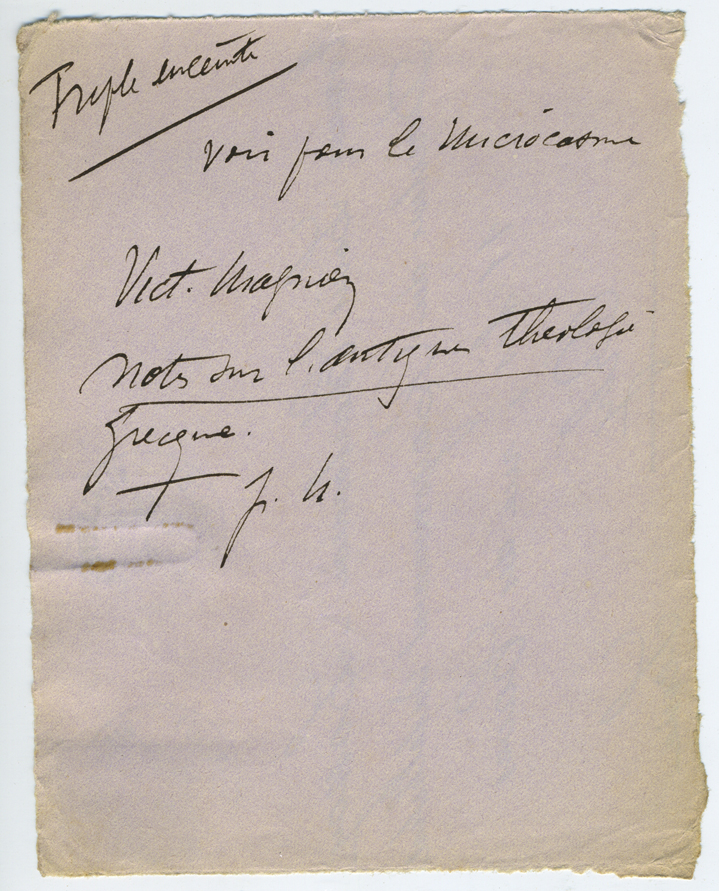 Triple enceinte
Voir pour le Microcosme
Vict. Magnien
Notes sur l'antique théologie
grecque.
p. 4.